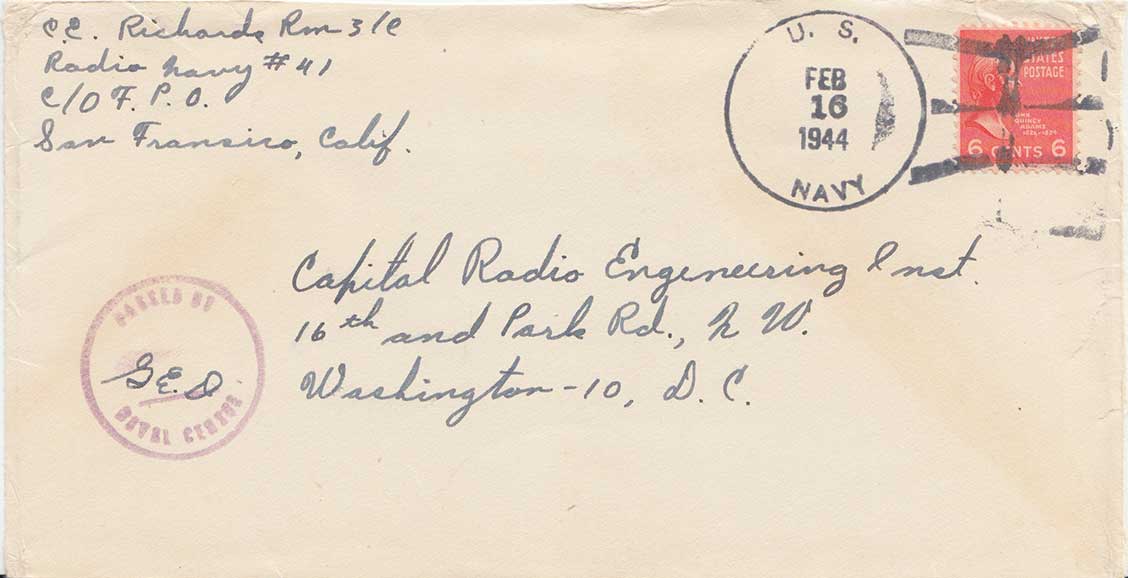 C.E. Richards Rm 3/C
Radio Navy #41
C/O F. P. O.
San Fransico, Calif.
U. S.
FEB
16
1944
NAVY
UNITED
STATES
POSTAGE
JOHN
QUINCY
ADAMS
1825-1829
6 CENTS 6
Capital Radio Engeneering Inst.
16th and Park Rd., N W.
Washington-10, D. C.
PASSED BY
G.E.D.
NAVAL CENSOR